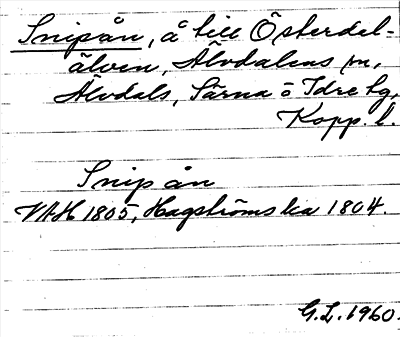 Snipån, å till Österdel-
älven, Älvdalens sn,
Älvdals, Särna o Idre tg,
Kopp. l.
Snip ån
VAH 1805, Hagströms ka 1804.
G.L. 1960.